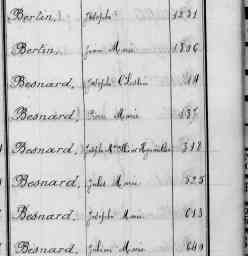 Bertin, Joseph 1231
Bertin, Jean Marie 1896
Besnard, Joseph 14
Besnard, Pierre Marie 135
Besnard, Joseph Marie 318
Besnard, Jules Marie 525
Besnard, Joseph Marie 613
Besnard, Julien Marie 649